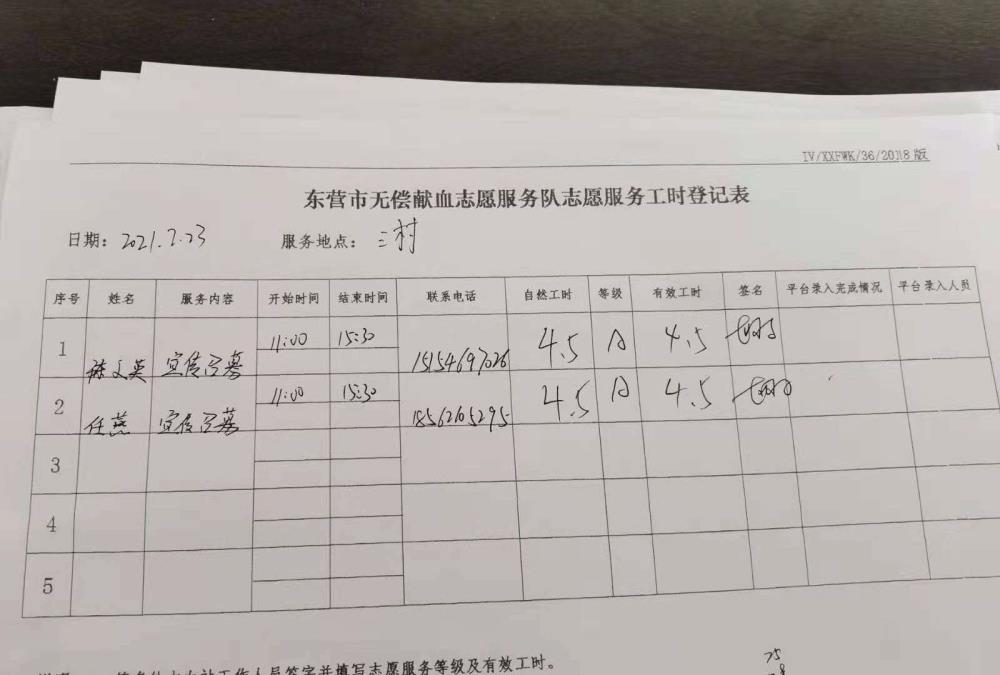 IV/XXFWK/36/2018版
东营市无偿献血志愿服务队志愿服务工时登记表
日期：2021.7.23 服务地点：三村
序号 姓名 服务内容 开始时间 结束时间 联系电话 自然工时 等级 有效工时 签名 平台录入完成情况 平台录入人员
1 陈文英 宣传招募 11:00 15:30 15154697026 4.5 A 4.5
2 任燕 宣传招募 11:00 15:30 18562105295 4.5 A 4.5
3
4
5
工作人员签字并填写志愿服务等级及有效工时。
75